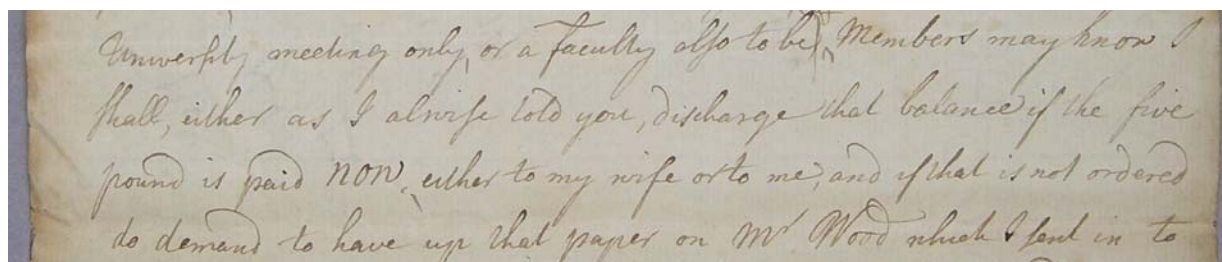 University meeting only, or a faculty also to be, Members may know I
shall, either as I alwise told you, discharge that balance if the five
pound is paid NOW, either to my wife or to me, and if that is not ordered
do demand to have up that paper on Mr Wood which I sent in to